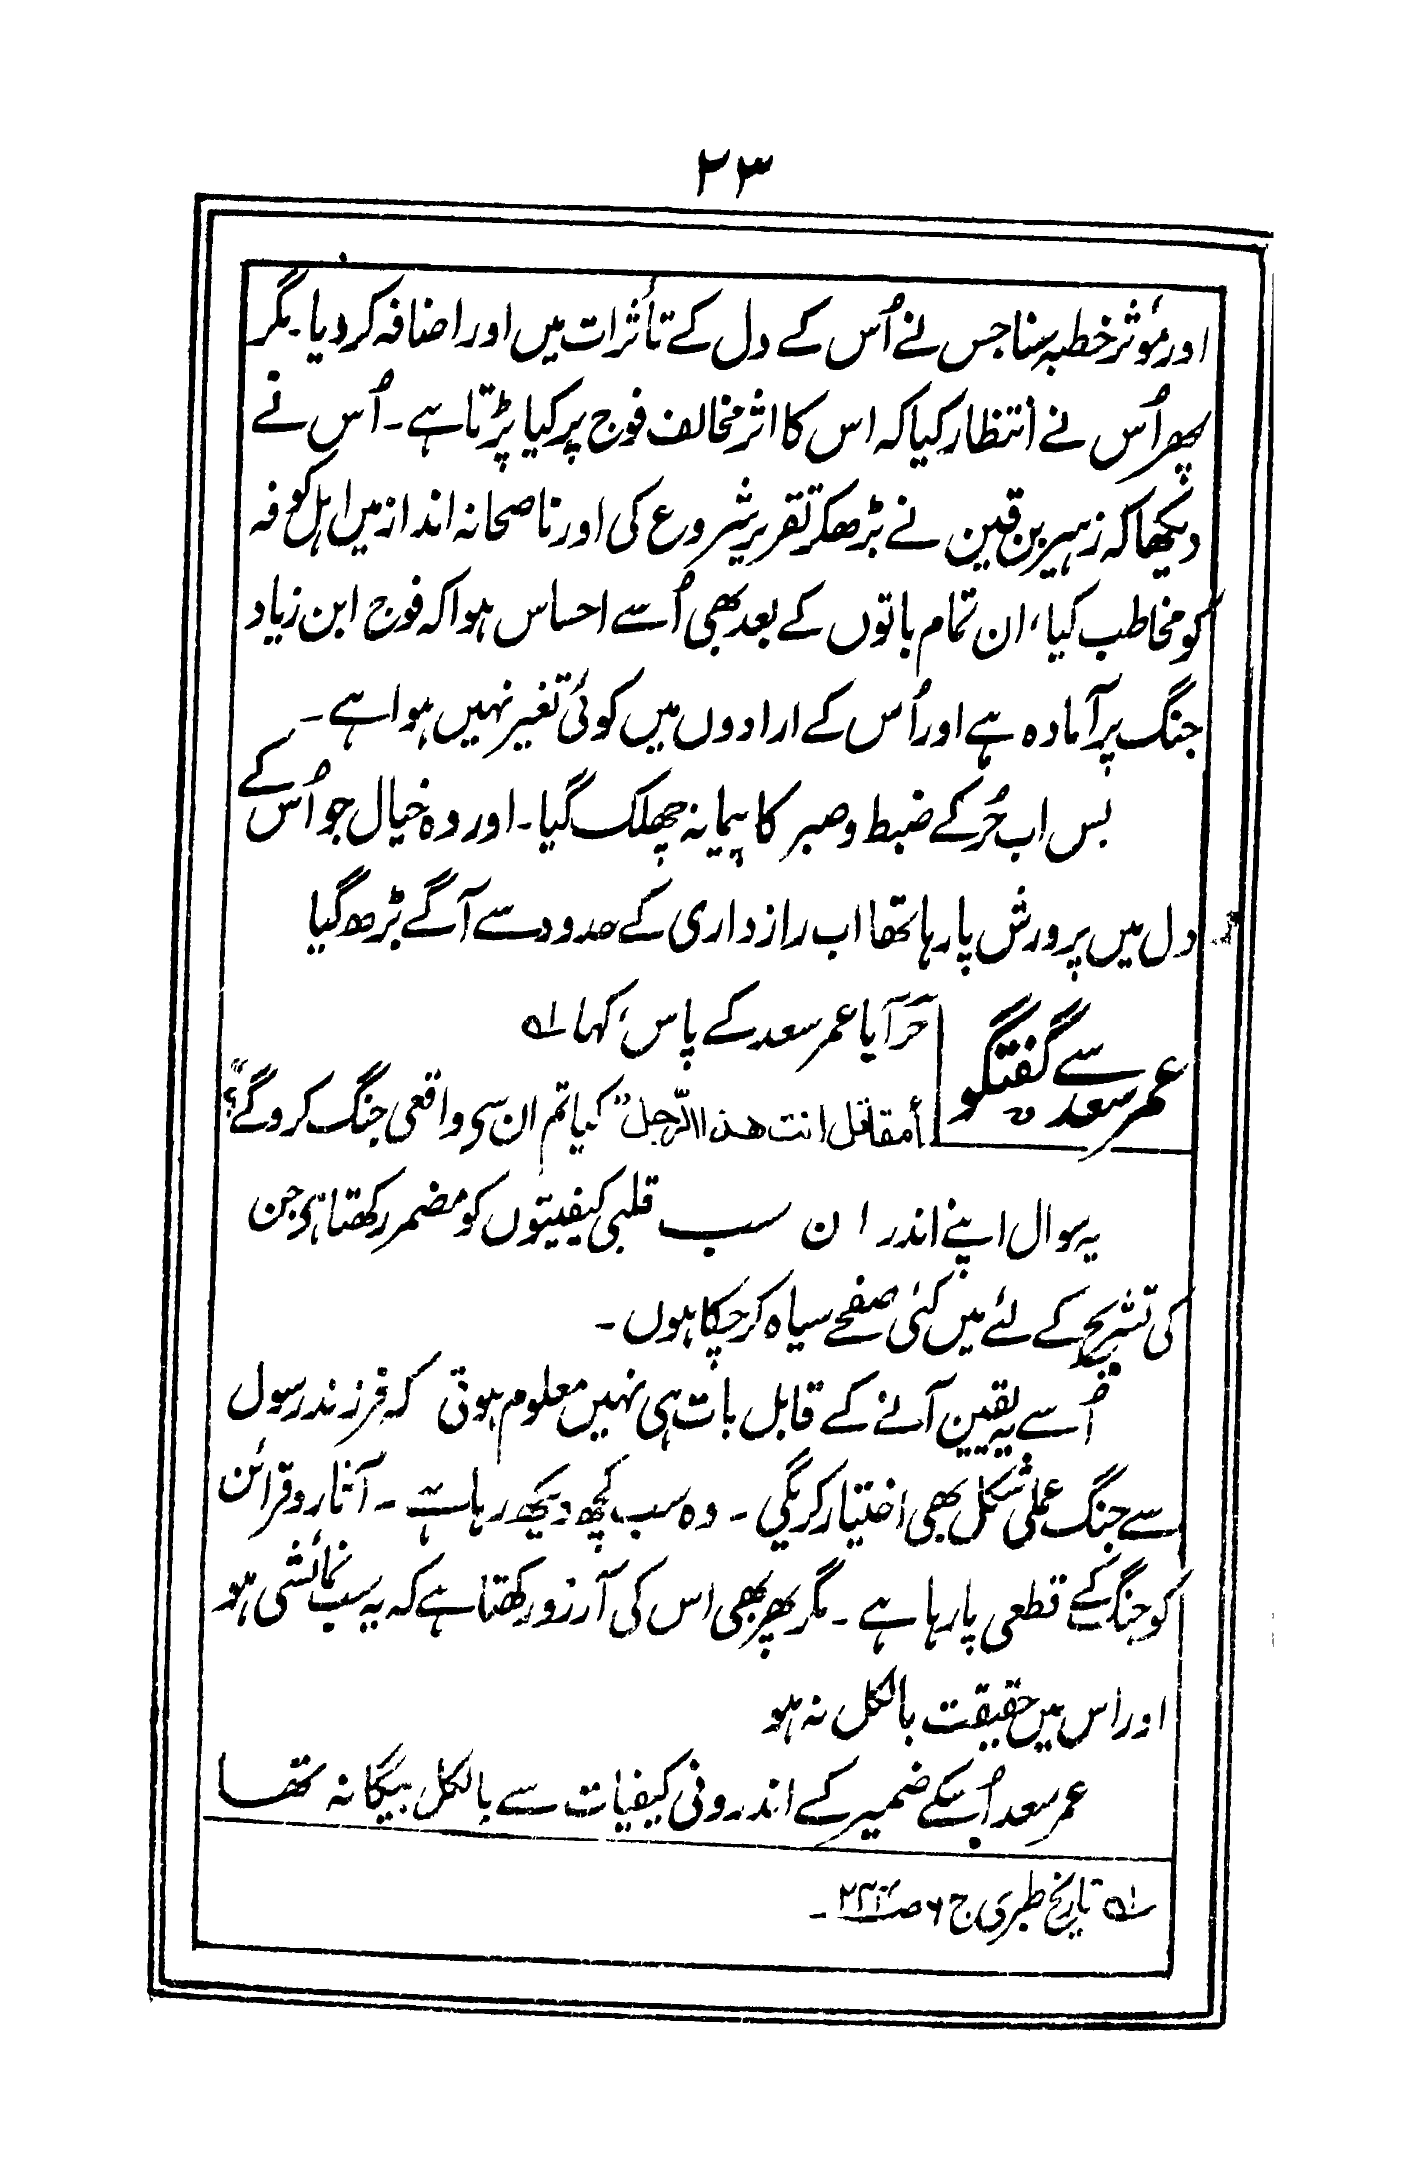 ۲۳
اور مؤثر خطبہ سنا جس نے اُس کے دل کے تأثرات میں اور اضافہ کر دیا۔ مگر
پھر اُس نے انتظار کیا کہ اس کا اثر مخالف فوج پر کیا پڑتا ہے۔ اُس نے
دیکھا کہ زہیر بن قین نے بڑھکر تقریر شروع کی اور ناصحانہ انداز میں اہل کوفہ
کو مخاطب کیا، ان تمام باتوں کے بعد بھی اُسے احساس ہوا کہ فوج ابن زیاد
جنگ پر آمادہ ہے اور اُس کے ارادوں میں کوئی تغیر نہیں ہوا ہے۔
بس اب حُر کے ضبط و صبر کا پیمانہ چھلک گیا۔ اور وہ خیال جو اُس کے
دل میں پرورش پا رہا تھا اب رازداری کے حدود سے آگے بڑھ گیا
عمر سعد سے گفتگو
حُر آیا عمر سعد کے پاس، کہا ؎۱
أمقاتل انت هذا الرّجل" کیا تم ان سے واقعی جنگ کروگے؟"
یہ سوال اپنے اندر ان سب قلبی کیفیتوں کو مضمر رکھتا ہی جن
کی تشریح کے لئے میں کئی صفحے سیاہ کر چکا ہوں۔
اُسے یہ یقین آنے کے قابل بات ہی نہیں معلوم ہوتی کہ فرزند رسول
سے جنگ عملی شکل بھی اختیار کریگی۔ وہ سب کچھ دیکھ رہا ہے۔ آثار و قرائن
کو جنگ کے قطعی پا رہا ہے۔ مگر پھر بھی اس کی آرزو رکھتا ہے کہ یہ سب نمائشی ہو
اور اس میں حقیقت بالکل نہ ہو
عمر سعد اُسکے ضمیر کے اندرونی کیفیات سے بالکل بیگانہ تھا
؎۱ تاریخ طبری ج ۶ ص